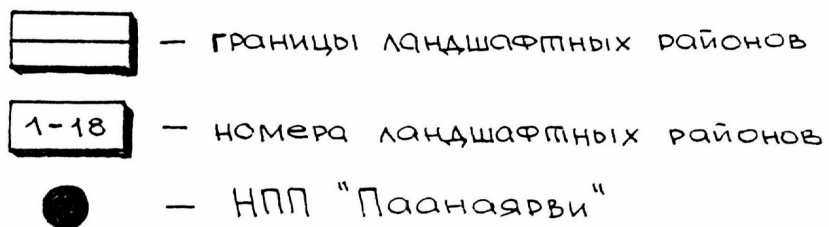 — границы ландшафтных районов
1-18 — номера ландшафтных районов
— НПП "Паанаярви"